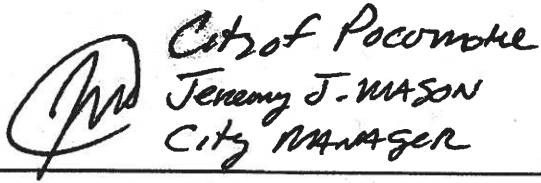 City of Pocomoke
Jeremy J. MASON
City MANAGER